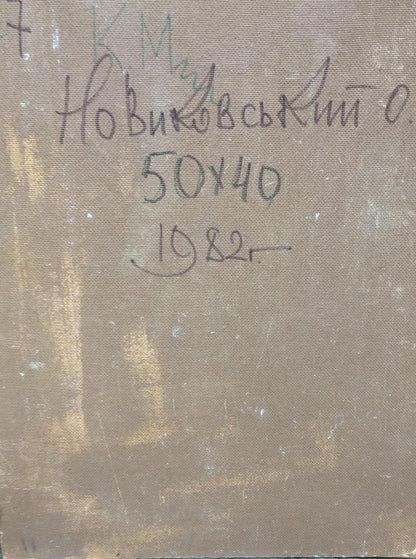 7
Новиковський О.
50х40
1982г